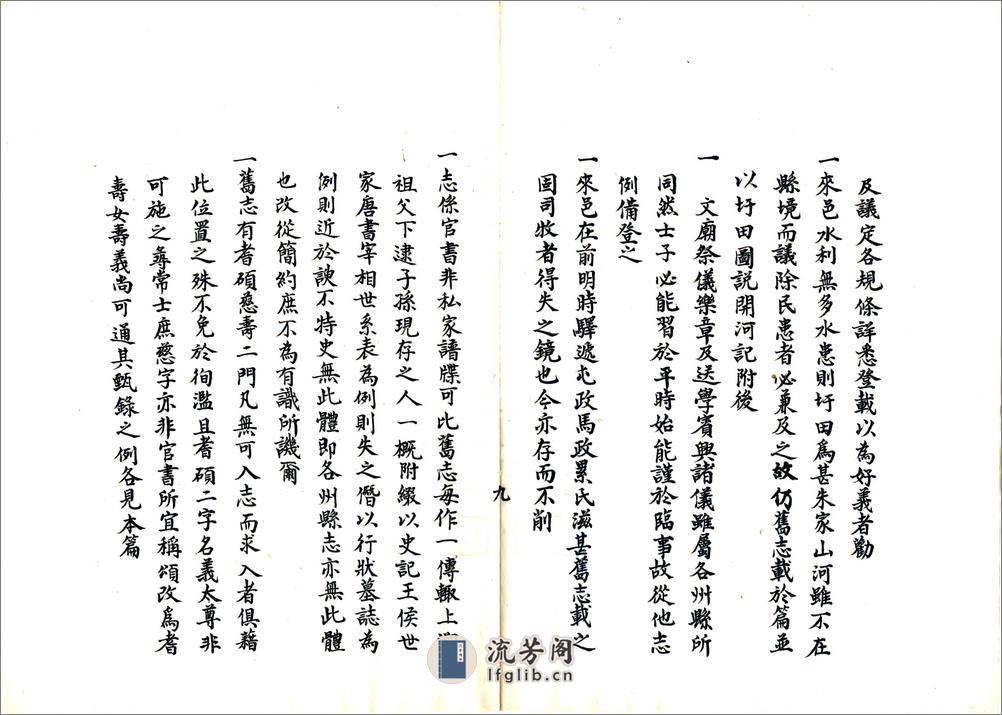 及議定各規條詳悉登載以為好義者勸
一來邑水利無多水患則圩田為甚朱家山河雖不在
縣境而議除民患者必兼及之故仍舊志載於篇並
以圩田圖說開河記附後
一　文廟祭儀樂章及送學賓興諸儀雖屬各州縣所
同然士子必能習於平時始能謹於臨事故從他志
例備登之
一來邑在前明時驛遞屯政馬政累民滋甚舊志載之
固司牧者得失之鏡也今亦存而不削
九
一志係官書非私家譜牒可比舊志每作一傳輙上
祖父下逮子孫現存之人一概附綴以史記王侯世
家唐書宰相世系表為例則失之僭以行狀墓誌為
例則近於諛不特史無此體即各州縣志亦無此體
也改從簡約庶不為有識所譏爾
一舊志有耆碩慈壽二門凡無可入志而求入者俱藉
此位置之殊不免於徇濫且耆碩二字名義太尊非
可施之尋常士庶慈字亦非官書所宜稱頌改為耆
壽女壽義尚可通其甄錄之例各見本篇
流芳阁
lfglib.cn